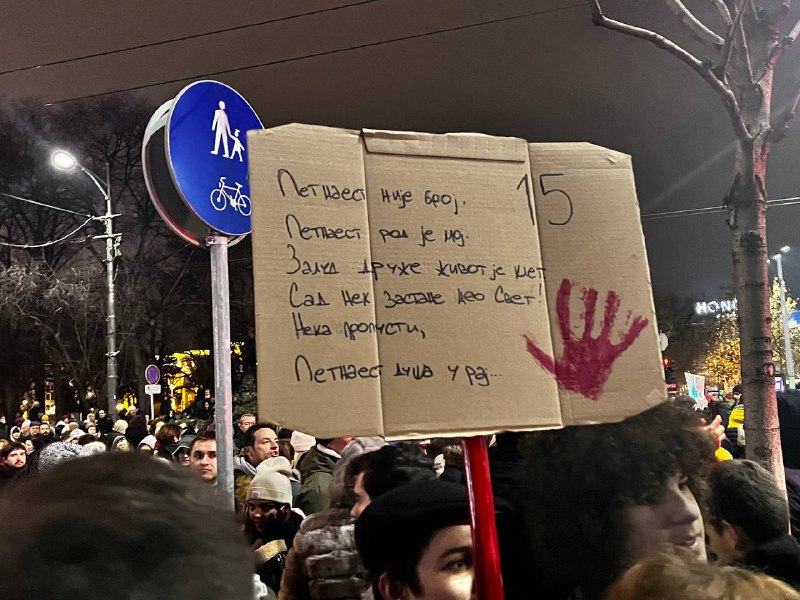 Петнаест није број.
15
Петнаест род је мој.
Залуд друже живот је клет
Сад нек застане цео Свет!
Нека пропусти,
Петнаест душа у рај...
HON